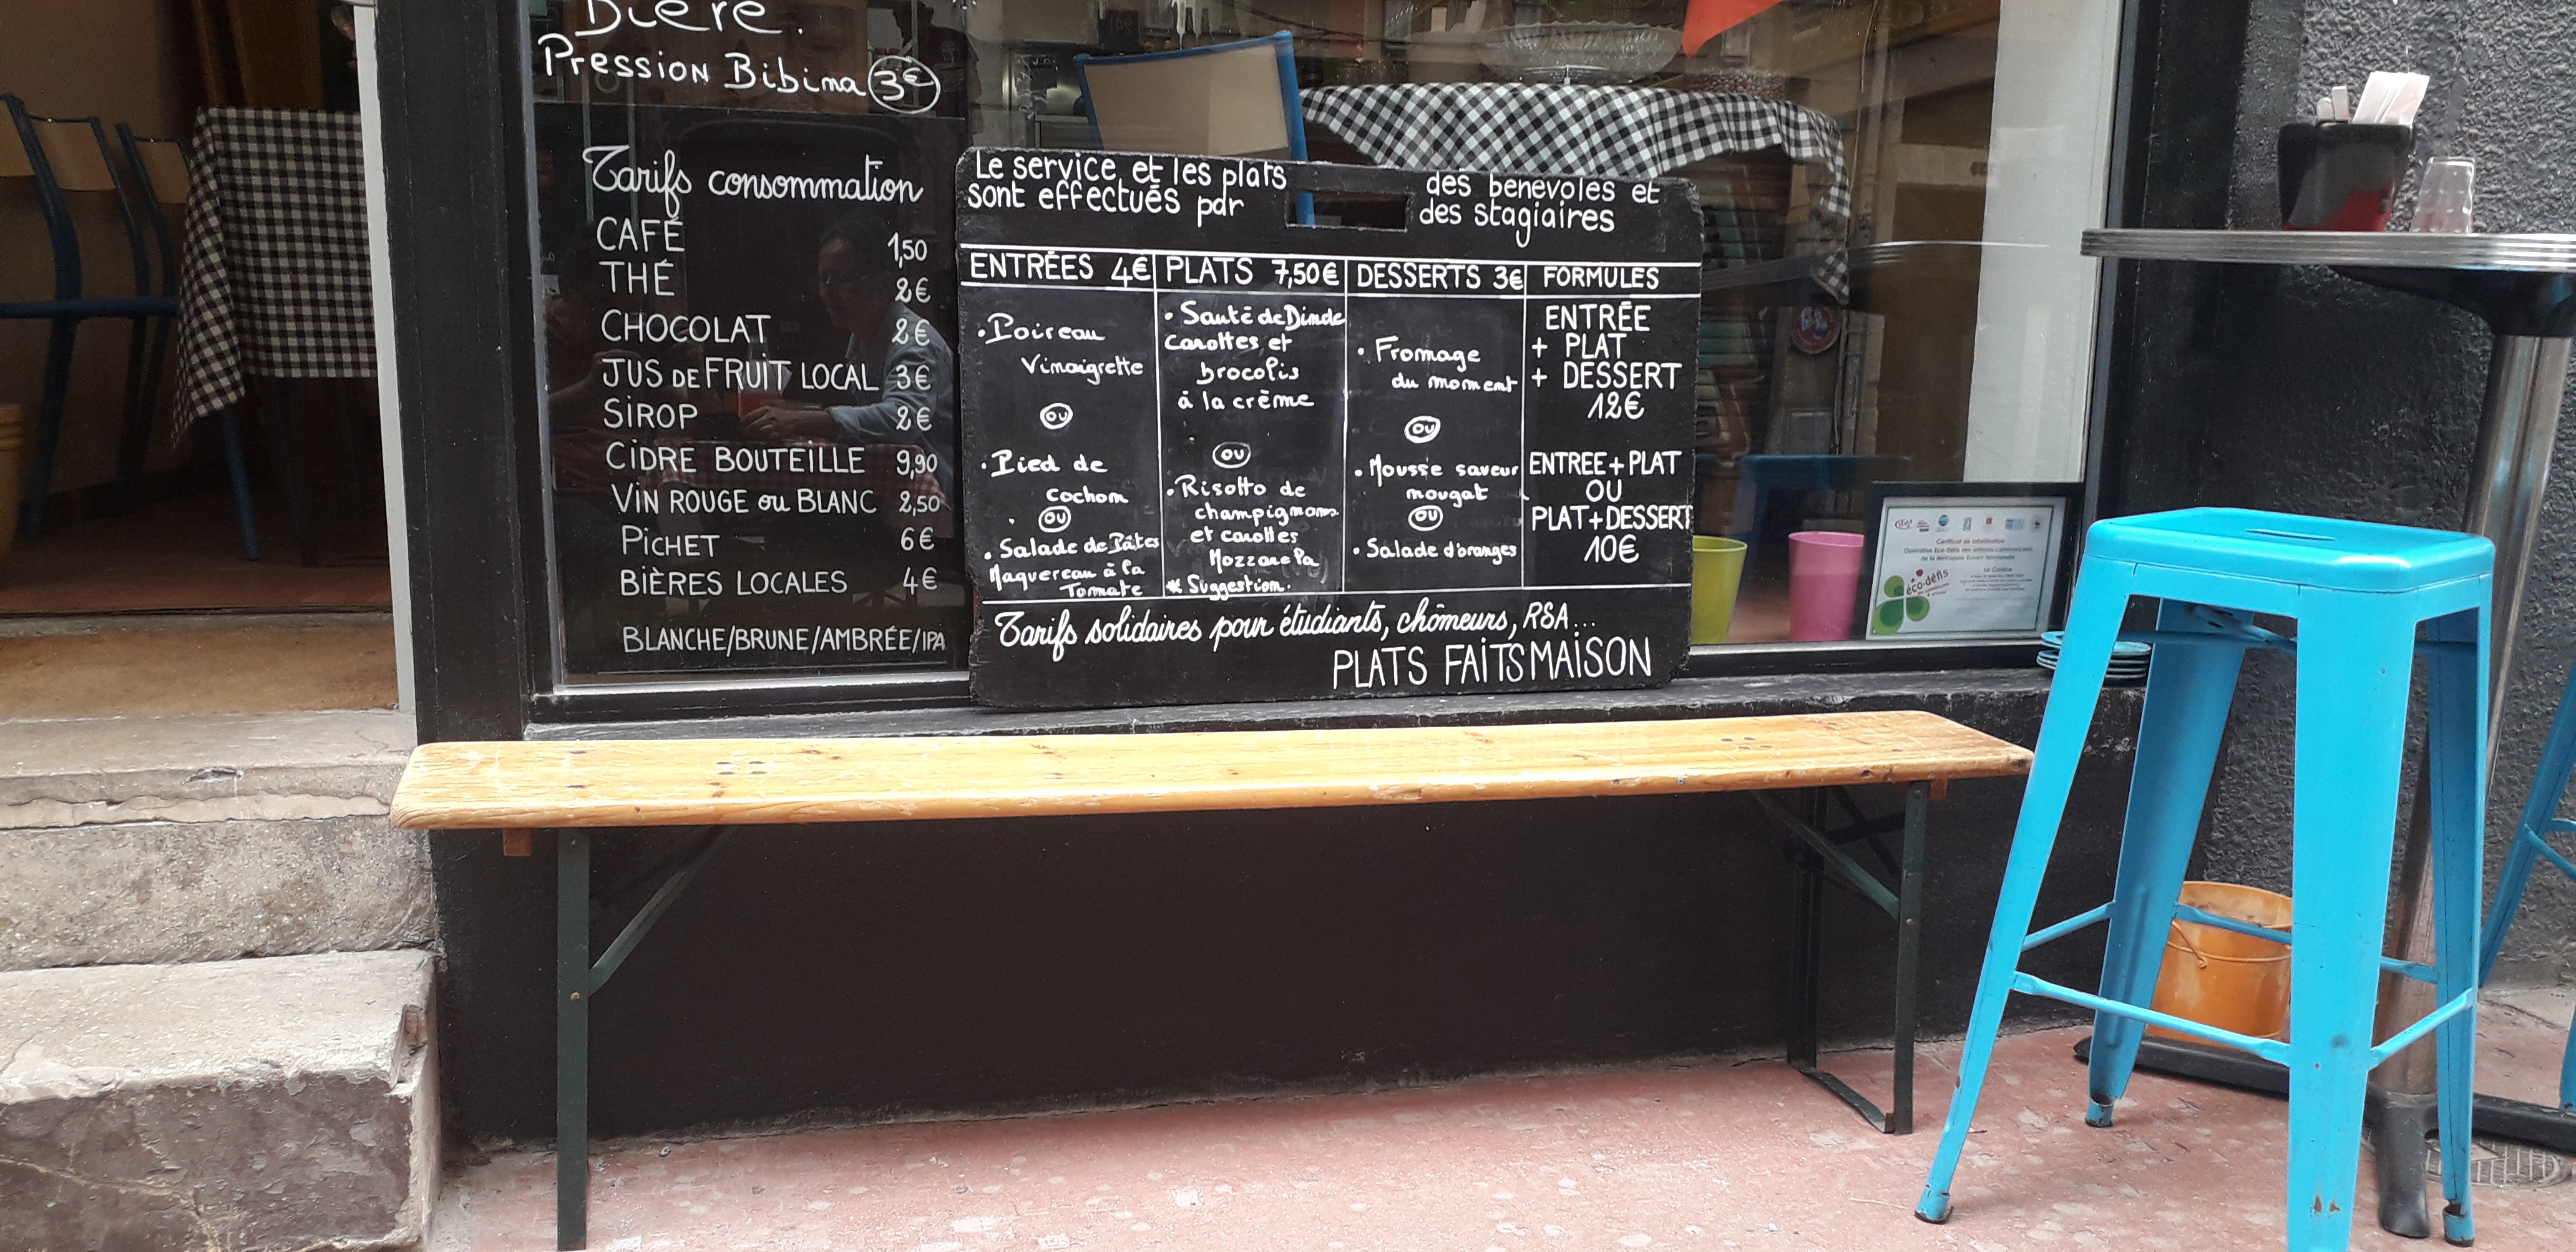 Bière.
Pression Bibina 3€
Tarifs consommation
CAFÉ 1,50
THÉ 2€
CHOCOLAT 2€
JUS DE FRUIT LOCAL 3€
SIROP 2€
CIDRE BOUTEILLE 9,90
VIN ROUGE ou BLANC 2,50
PICHET 6€
BIÈRES LOCALES 4€
BLANCHE/BRUNE/AMBRÉE/IPA
Le service et les plats
sont effectués par
des bénévoles et
des stagiaires
ENTRÉES 4€
• Poireau
Vinaigrette
OU
• Pied de
cochon
OU
• Salade de Pâtes
Maquereau à la
Tomate
PLATS 7,50€
• Sauté de Dinde
Carottes et
brocolis
à la crème
OU
• Risotto de
champignons
et carottes
Mozzarella
* Suggestion.
DESSERTS 3€
• Fromage
du moment
OU
• Mousse saveur
nougat
OU
• Salade d'oranges
FORMULES
ENTRÉE
+ PLAT
+ DESSERT
12€
ENTREE+PLAT
OU
PLAT+DESSERT
10€
Tarifs solidaires pour étudiants, chômeurs, RSA...
PLATS FAITS MAISON
Certificat de labellisation
Opération Eco-Défis des artisans-commerçants
de la Métropole Rouen Normandie
éco-défis